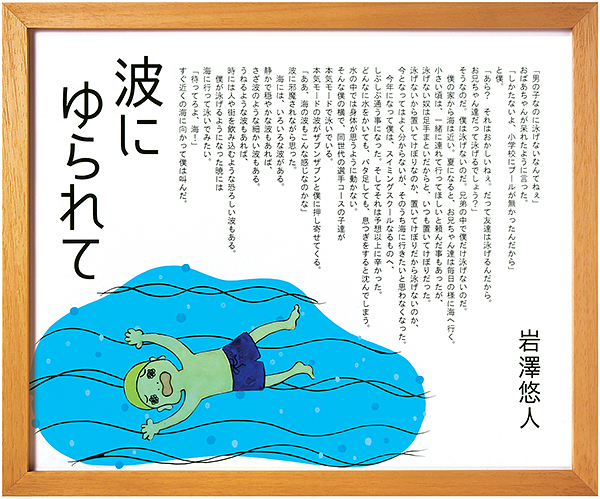 波に
ゆられて
岩澤悠人
「男の子なのに泳げないなんてねぇ」
おばあちゃんが呆れたように言った。
「しかたないよ、小学校にプールが無かったんだから」
と僕。
「あら？　それはおかしいねぇ。だって友達は泳げるんだから。
お兄ちゃん達だって泳げるでしょう？」
そうなのだ。僕は泳げないのだ。兄弟の中で僕だけ泳げないのだ。
僕の家から海は近い。夏になると、お兄ちゃん達は毎日の様に海へ行く。
小さい頃は、一緒に連れて行ってほしいと頼んだ事もあったが、
泳げない奴は足手まといだからと、いつも置いてけぼりだった。
泳げないから置いてけぼりなのか、置いてけぼりだから泳げないのか、
今となってはよく分からないが、そのうち海に行きたいと思わなくなった。
今年になって僕は、スイミングスクールなるものへ、
しぶしぶ通う事になった。そしてそれは予想以上に辛かった。
どんなに水をかいても、バタ足しても、息つぎをすると沈んでしまう。
水の中では身体が思うように動かない。
そんな僕の横で、同世代の選手コースの子達が
本気モードで泳いでいる。
本気モードの波がザブンザブンと僕に押し寄せてくる。
「ああ、海の波もこんな感じなのかな」
波に邪魔されながら思った。
海には、いろいろな波がある。
静かで穏やかな波もあれば、
さざ波のような細かい波もある。
うねるような波もあれば、
時には人や街を飲み込むような恐ろしい波もある。
僕が泳げるようになった暁には
海に行って泳いでみたい。
「待ってろよ、海！」
すぐ近くの海に向かって僕は叫んだ。